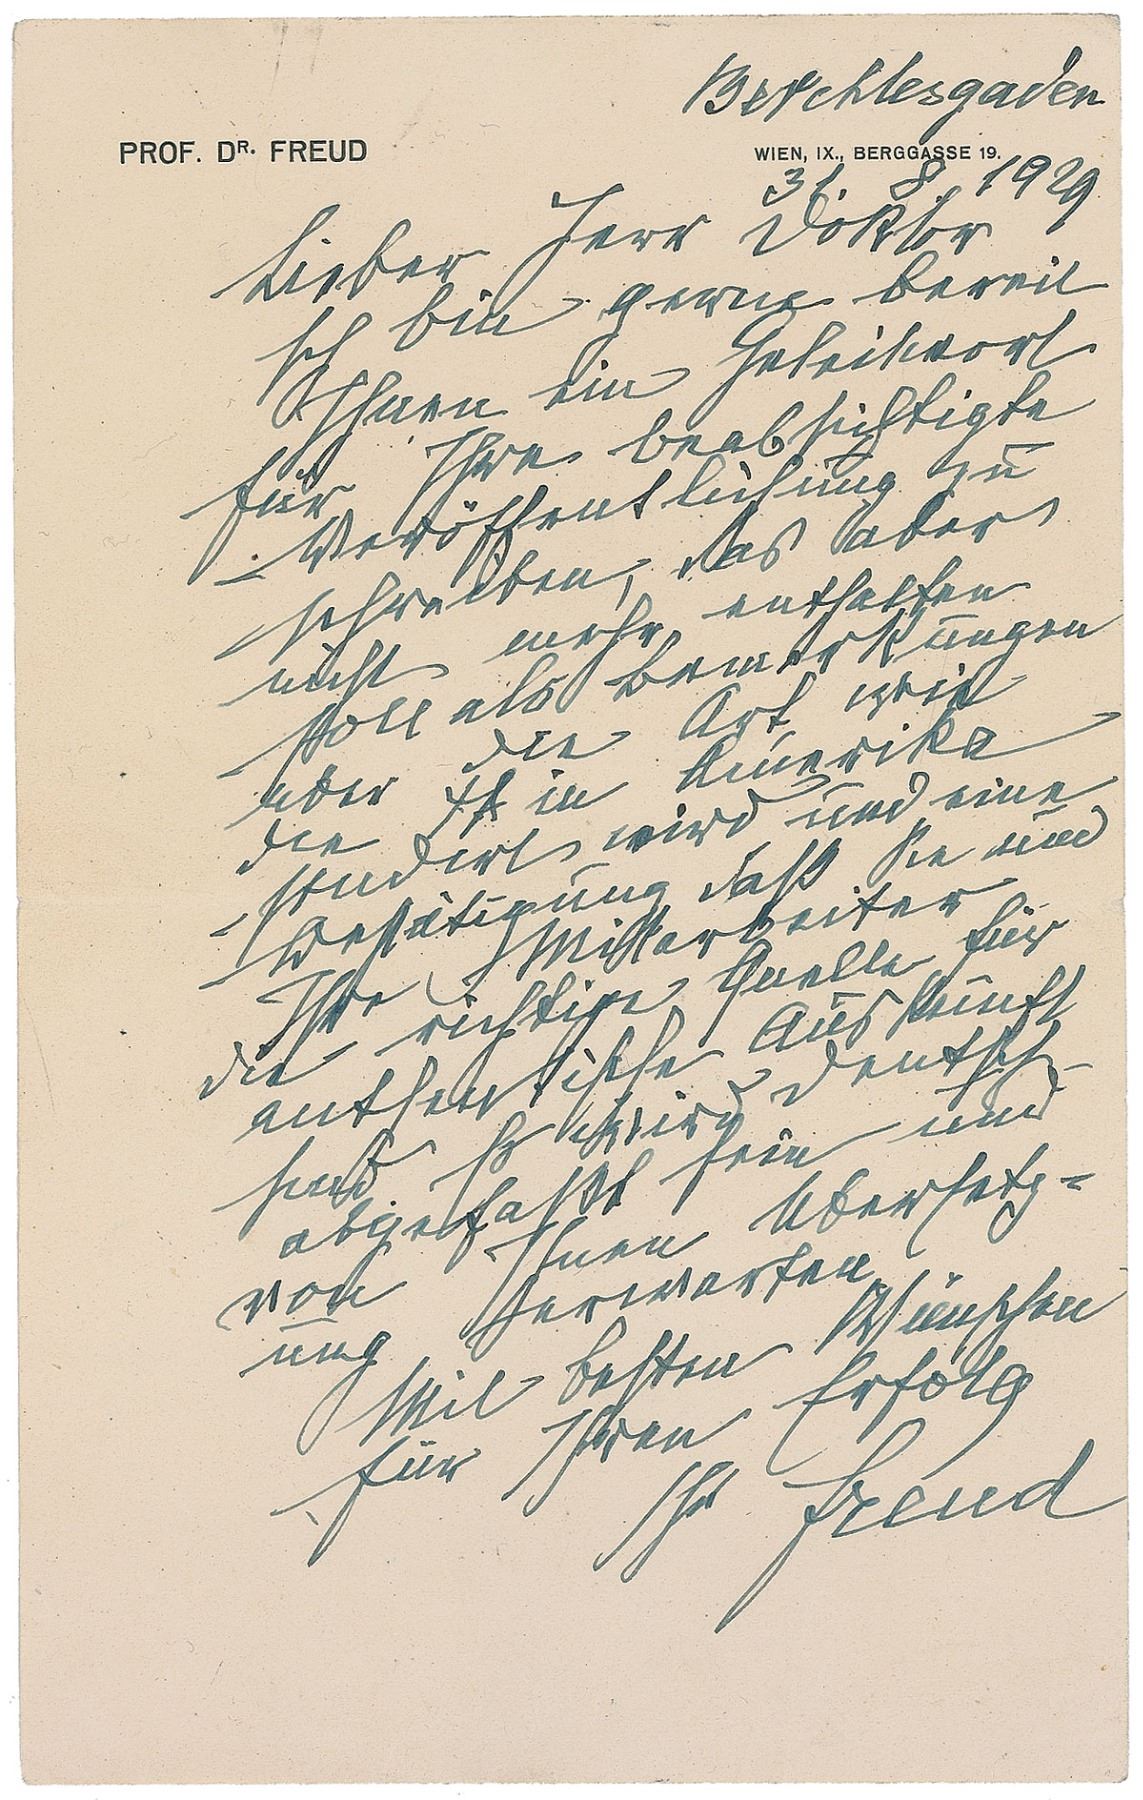 Berchtesgaden
PROF. DR. FREUD
WIEN, IX., BERGGASSE 19.
31. 8. 1929
Lieber Herr Doktor
Ich bin gerne bereit
Ihnen ein Geleitwort
für Ihre beabsichtigte
Veröffentlichung zu
schreiben, das aber
nicht mehr enthalten
soll als Bemerkungen
über die Art wie
die in Amerika
studirt wird und eine
Bestätigung daß Sie und
Ihre Mitarbeiter
die richtige Quelle für
authentische Auskunft
sind. Es wird deutsch
abgefaßt sein und
von Ihnen Übersetz=
ung erwarten.
Mit besten Wünschen
für Ihren Erfolg
Ihr Freud